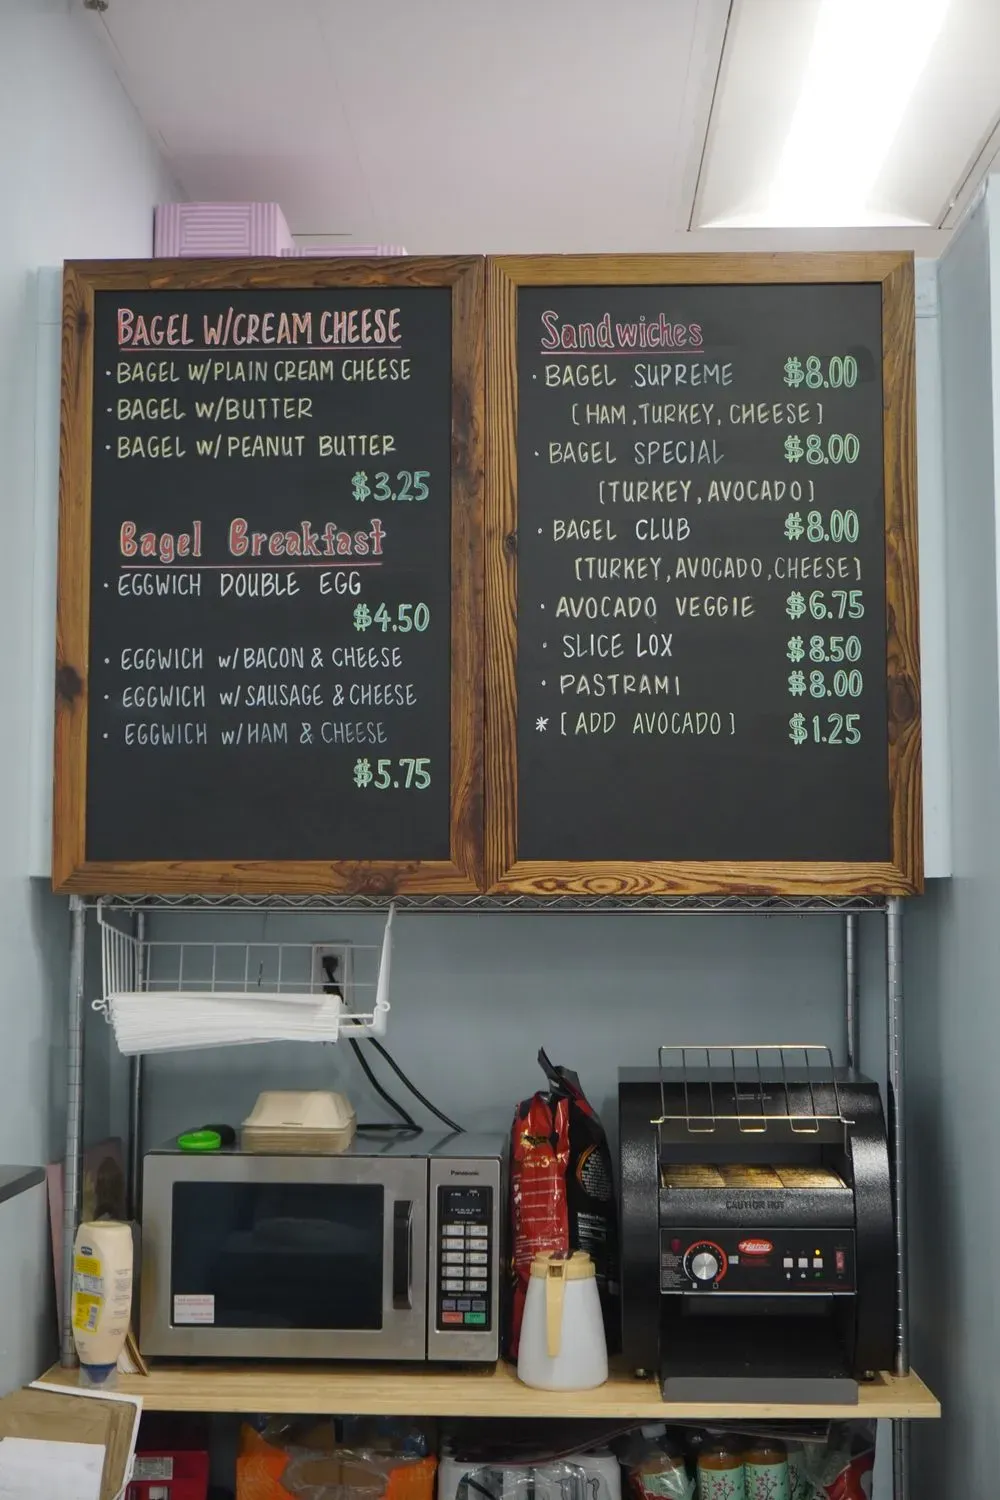 BAGEL W/CREAM CHEESE
· BAGEL W/PLAIN CREAM CHEESE
· BAGEL W/BUTTER
· BAGEL W/PEANUT BUTTER
$3.25
Bagel Breakfast
· EGGWICH DOUBLE EGG
$4.50
· EGGWICH w/BACON & CHEESE
· EGGWICH w/SAUSAGE & CHEESE
· EGGWICH w/HAM & CHEESE
$5.75
Sandwiches
· BAGEL SUPREME $8.00
[HAM, TURKEY, CHEESE]
· BAGEL SPECIAL $8.00
[TURKEY, AVOCADO]
· BAGEL CLUB $8.00
[TURKEY, AVOCADO, CHEESE]
· AVOCADO VEGGIE $6.75
· SLICE LOX $8.50
· PASTRAMI $8.00
* [ADD AVOCADO] $1.25
Panasonic
CAUTION HOT
Hatco